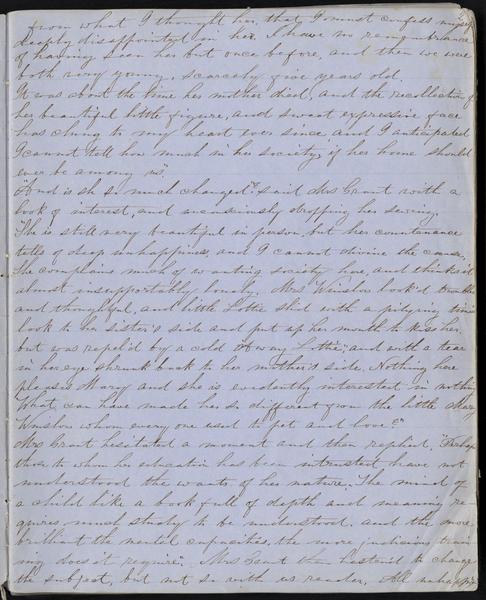 from what I thought her, that I must confess myself
deeply disappointed in her. I have no remembrance
of having seen her but once before, and then we were
both very young, scarcely five years old.
It was about the time her mother died, and the recollection of
her beautiful little figure, and sweet expressive face
has clung to my heart ever since and I anticipated
I cannot tell how much in her society, if her home should
ever be among us."
"And is she so much changed" said Mrs Grant with a
look of interest, and unconsciously dropping her sewing.
"She is still very beautiful in person, but her countenance
tells of deep unhappiness, and I cannot divine the cause.
She complains much of wanting society here, and thinks it
almost insupportably lonely. Mrs Winslow look'd troubled
and thoughtful, and little Lottie slid with a pitying timid
look to her sister's side and put up her mouth to kiss her.
but was repel'd by a cold "Away Lottie", and with a tear
in her eye shrunk back to her mother's side. Nothing here
pleases Mary and she is evidently interested in nothing
What can have made her so different from the little Mary
Winslow whom every one used to pet and love?"
Mrs Grant hesitated a moment and then replied, "Perhaps
those to whom her education has been intrusted have not
understood the wants of her nature. The mind of
a child like a book full of depth and meaning re-
quires much study to be understood. and the more
brilliant the mental capacities, the more judicious train
ing does it require". Mrs Grant then hasten'd to change
the subject, but not so with us reader. All unhappy